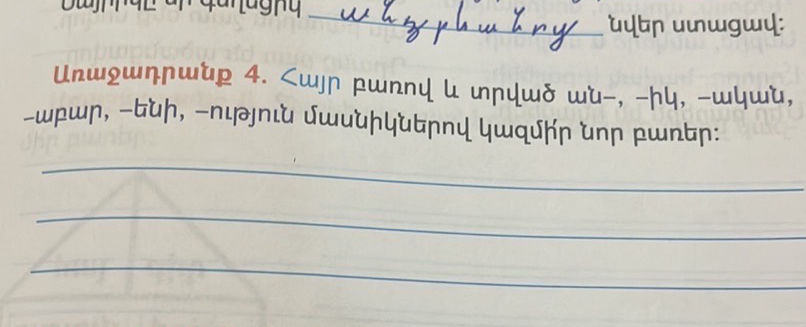 նվեր ստացավ:
Առաջադրանք 4. Հայր բառով և տրված ան–, –իկ, –ական,
–աբար, –ենի, –ություն մասնիկներով կազմի՛ր նոր բառեր: